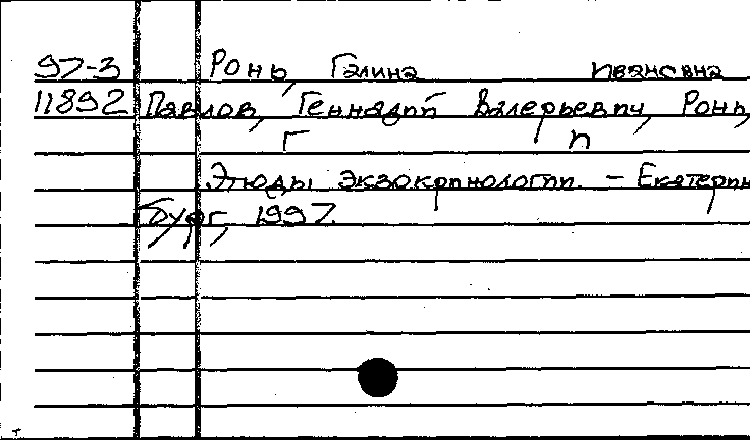 97-3 Ронь, Галина Ивановна
11892 Павлов, Геннадий Валерьевич, Ронь,
Г И
Этюды экзокринологии. – Екатерин
бург, 1997.